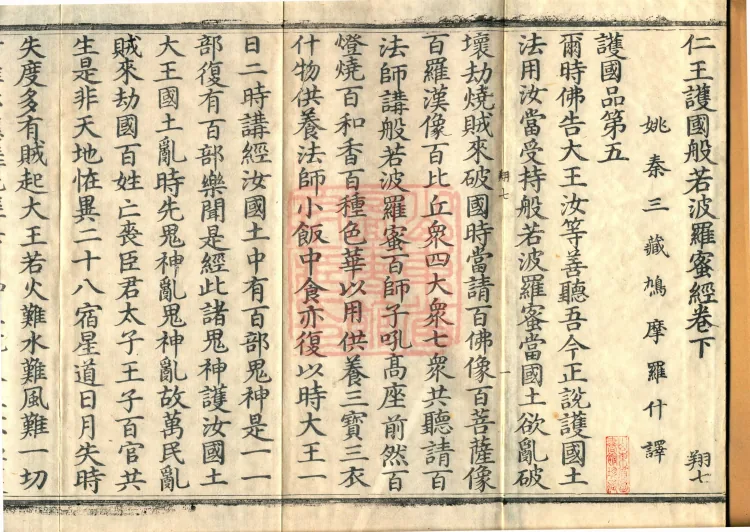 仁王護國般若波羅蜜經卷下 翔七
姚秦三藏鳩摩羅什譯
護國品第五
爾時佛告大王汝等善聽吾今正說護國土
法用汝當受持般若波羅蜜當國土欲亂破
翔七 一
壞劫燒賊來破國時當請百佛像百菩薩像
百羅漢像百比丘衆四大衆七衆共聽請百
法師講般若波羅蜜百師子吼髙座前然百
燈燒百和香百種色華以用供養三寶三衣
什物供養法師小飯中食亦復以時大王一
日二時講經汝國土中有百部鬼神是一一
部復有百部樂聞是經此諸鬼神護汝國土
大王國土亂時先鬼神亂鬼神亂故萬民亂
賊來劫國百姓亡喪臣君太子王子百官共
生是非天地恠異二十八宿星道日月失時
失度多有賊起大王若火難水難風難一切